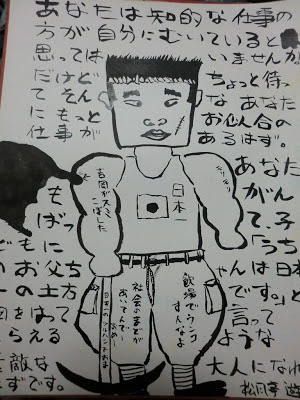 あなたは知的な仕事の
方が自分にむいていると
思っては いませんか
だけど ちょっと待っ
てそん な あなた
にもっと お似合の
仕事が あるはず。
あなた
も がん
ばっ て 子
どもに 「うち
のお父ち ゃんは日本
一の土方 です。」
をはって 言って
らえる ような
敵な 大人になれ
ずです。 松月亭 遊
日本一
モリモリ
吉岡がスミ
こぼした
社会のまどが
あいてんでー
現場でウンコ
すんなよ